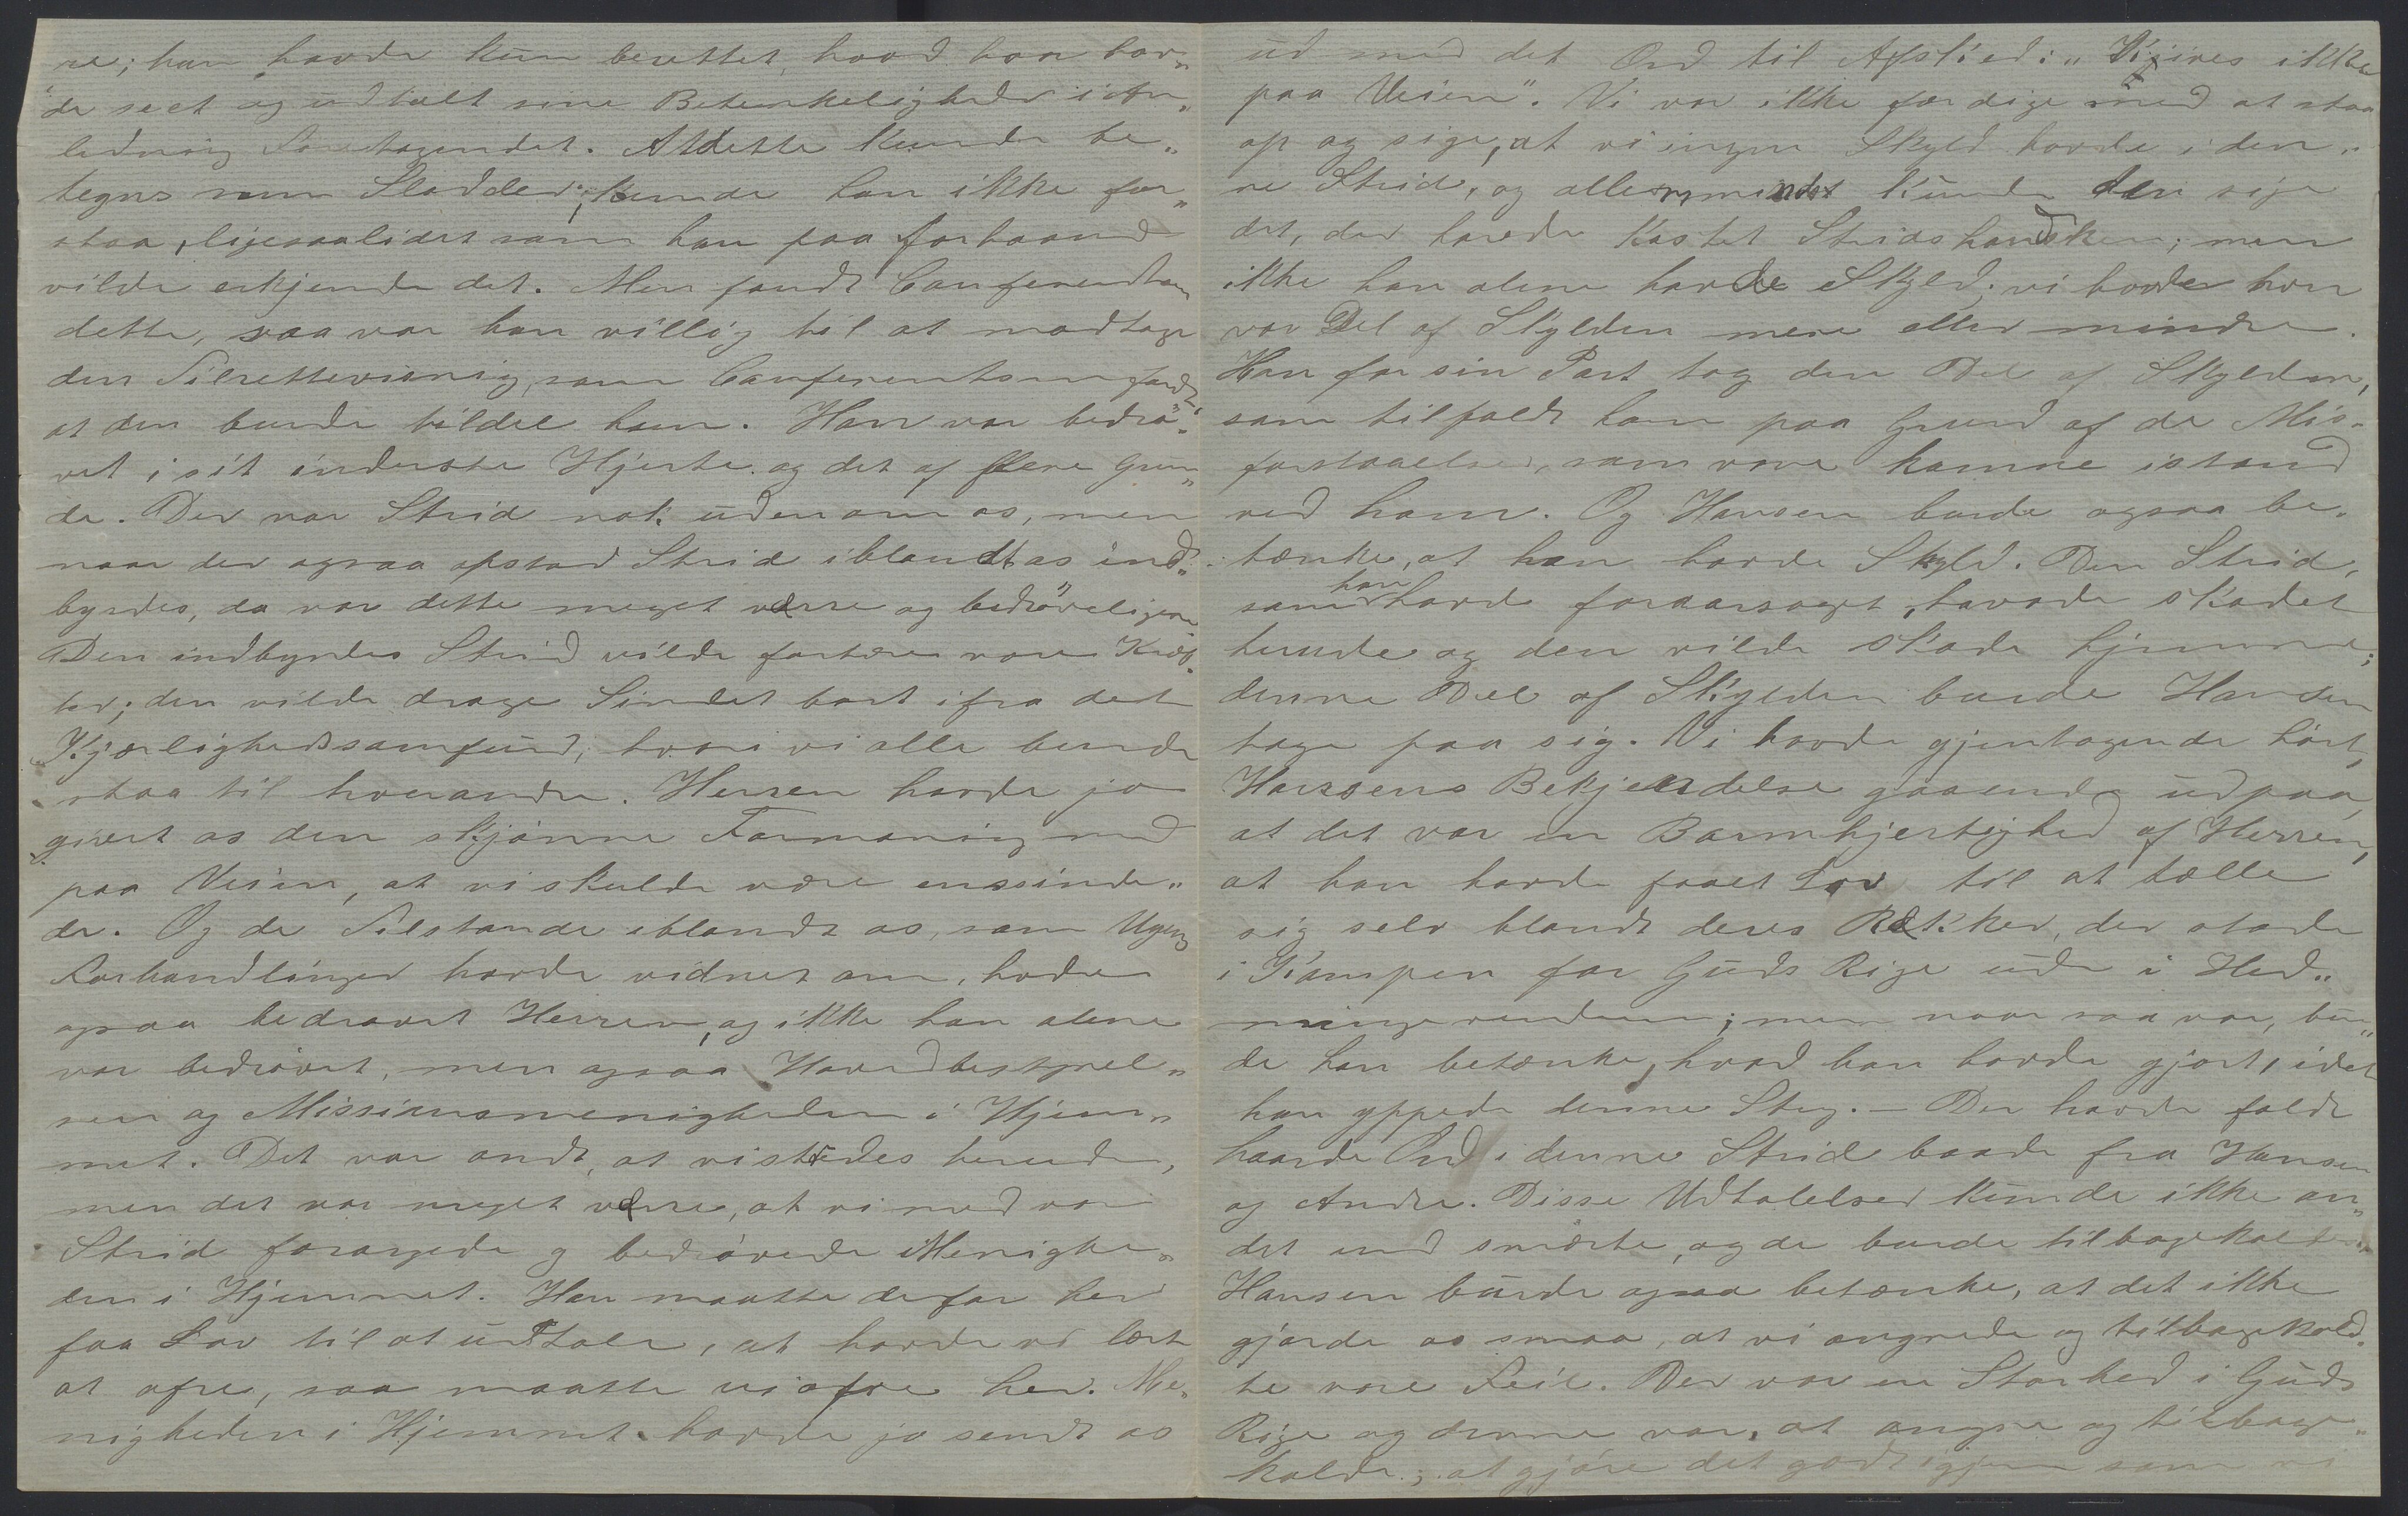 re; han havde kun berettet, hvad han hav„
de seet og udtalt sine Betænkeligheder i An„
ledning Foretagendet. At dette kunde be„
tegnes som Sladder, kunde han ikke for„
staa, ligesaalidet som han paa forhaand
vilde erkjende det. Men fandt Conferentsen
dette, saa var han villig til at modtage
den Tilrettevisning, som Conferentsen fandt,
at den burde tildele ham. Han var bedrö„
vet i sit inderste Hjerte og det af flere Grun„
de. Der var Strid nok udenom os, men
naar der ogsaa opstod Strid iblandt os ind„
byrdes, da var dette meget værre og bedröveligere
Den indbyrdes Strid vilde fortære vore Kræf„
ter; den vilde drage Sindet bort ifra det
Kjærlighedssamfund, hvori vi alle burde
staa til hverandre. Herren havde jo
givet os den skjönne Formaning med
paa Veien, at vi skulde være enssinde„
de. Og de Tilstande iblandt os, som Ugens
Forhandlinger havde vidnet om, havde
ogsaa bedrøvet Herren, og ikke han alene
var bedrövet, men ogsaa Hovedbestyrel„
sen og Missionsmenigheden i Hjem„
met. Det var ondt, at vi stredes herude,
men det var meget værre, at vi med vor
Strid forargede og bedrövede Menighe„
den i Hjemmet. Han maatte derfor her
faa Lov til at udtale, at havde vi lært
at ofre, saa maatte vi ofre her. Me„
nigheden i Hjemmet havde jo sendt os
ud med det Ord til Afsked: „Kives ikke
paa Veien". Vi var ikke færdige med at staa
op og sige, at vi ingen Skyld havde i den„
ne Strid, og allermindst kunde den sige
det, der havde kastet Stridshandsken; men
ikke han alene havde Skyld; vi havde hver
vor Del af Skylden mere eller mindre.
Han for sin Part tog den Del af Skylden,
som tilfaldt ham paa Grund af de Mis„
forstaaelser, som vare komne istand
ved ham. Og Hansen burde ogsaa be„
tænke, at han havde Skyld. Den Strid,
som han havde foraarsaget, havde skadet
herude og den vilde skade hjemme;
denne Del af Skylden burde Hansen
tage paa sig. Vi havde gjentagende hört,
Hansens Bekjendelse gaaende ud paa,
at det var en Barmhjertighed af Herren,
at han havde faaet Lov til at tælle
sig selv blandt deres Rækker, der stode
i Kampen for Guds Rige ude i Hed„
ningeverdenen; men naar saa var, bur„
de han betænke, hvad han havde gjort, idet
han yppede denne Strid. – Der havde faldt
haarde Ord i denne Strid baade fra Hansen
og Andre. Disse Udtalelser kunde ikke an„
det end smærte, og de burde tilbagekaldes.
Hansen burde ogsaa betænke, at det ikke
gjorde os smaa, at vi angrede og tilbagekald„
te vore Feil. Der var en Storhed i Guds
Rige og denne var, at angre og tilbage„
kalde; at gjöre det godt igjen som vi